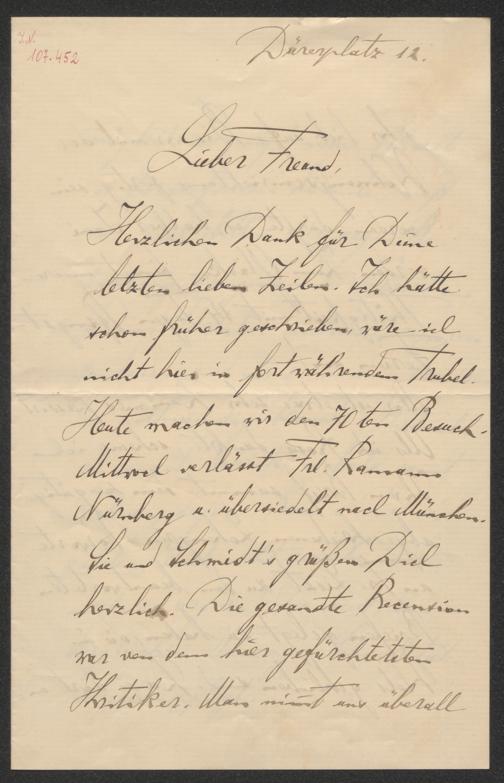 I.N.
107.452
Dürerplatz 12.
Lieber Freund,
Herzlichen Dank für Deine
letzten lieben Zeilen. Ich hätte
schon früher geschrieben, wäre ich
nicht hier in fortwährendem Trubel.
Heute machen wir den 70ten Besuch.
Mittwoch verlässt Frl. Ramann
Nürnberg u. übersiedelt nach München.
Sie und Schmidt's grüßen Dich
herzlich. Die gesandte Recension
war von dem hier gefürchtetsten
Kritiker. Man nimmt uns überall